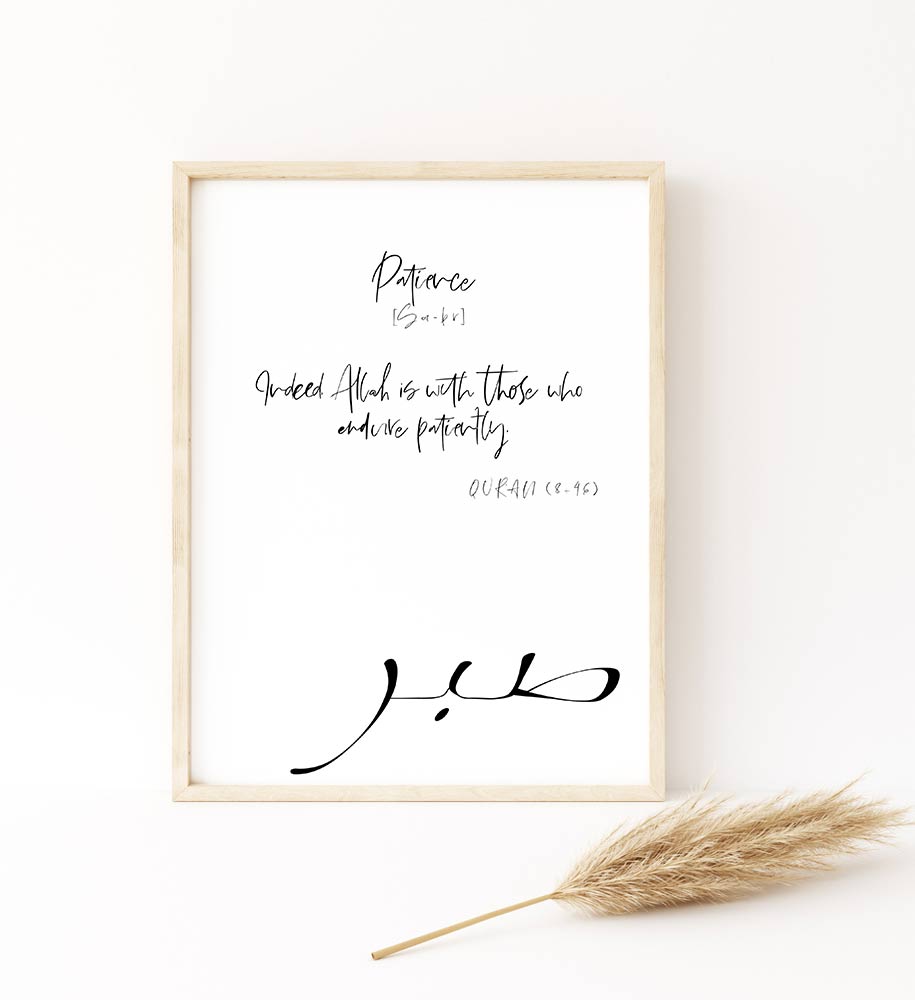 Patience
[Sa-br]
Indeed Allah is with those who
endure patiently.
QURAN (8-46)
صبر